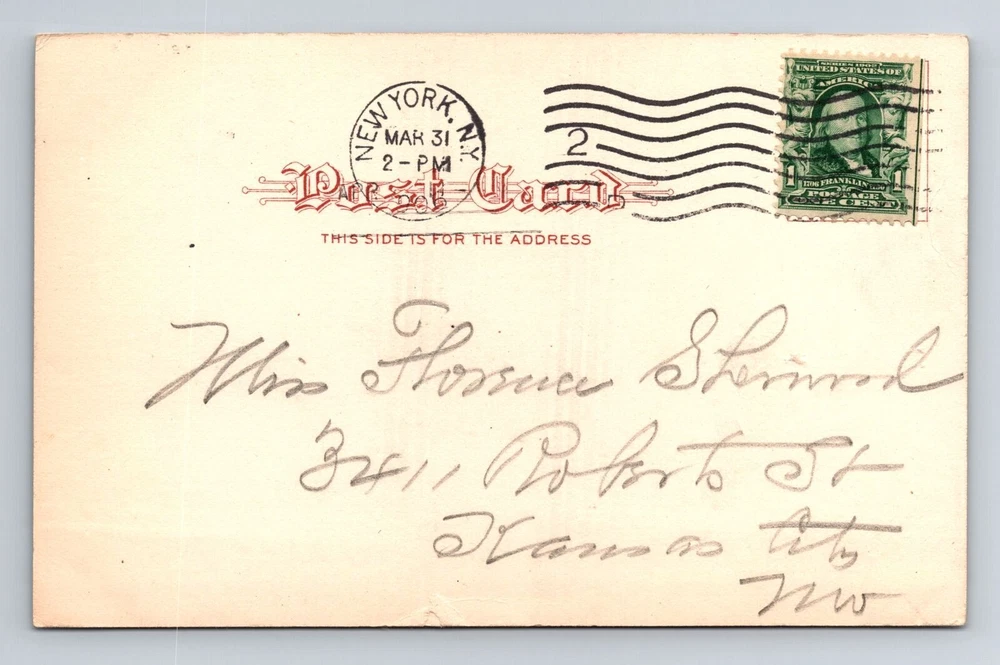 NEW YORK, N.Y.
MAR 31
2-PM
2
SERIES 1902
UNITED STATES OF
AMERICA
1706 FRANKLIN 1790
POSTAGE
1 ONE CENT 1
Post Card
THIS SIDE IS FOR THE ADDRESS
Miss Florence Sherwood
3411 Roberts St
Kansas City
Mo